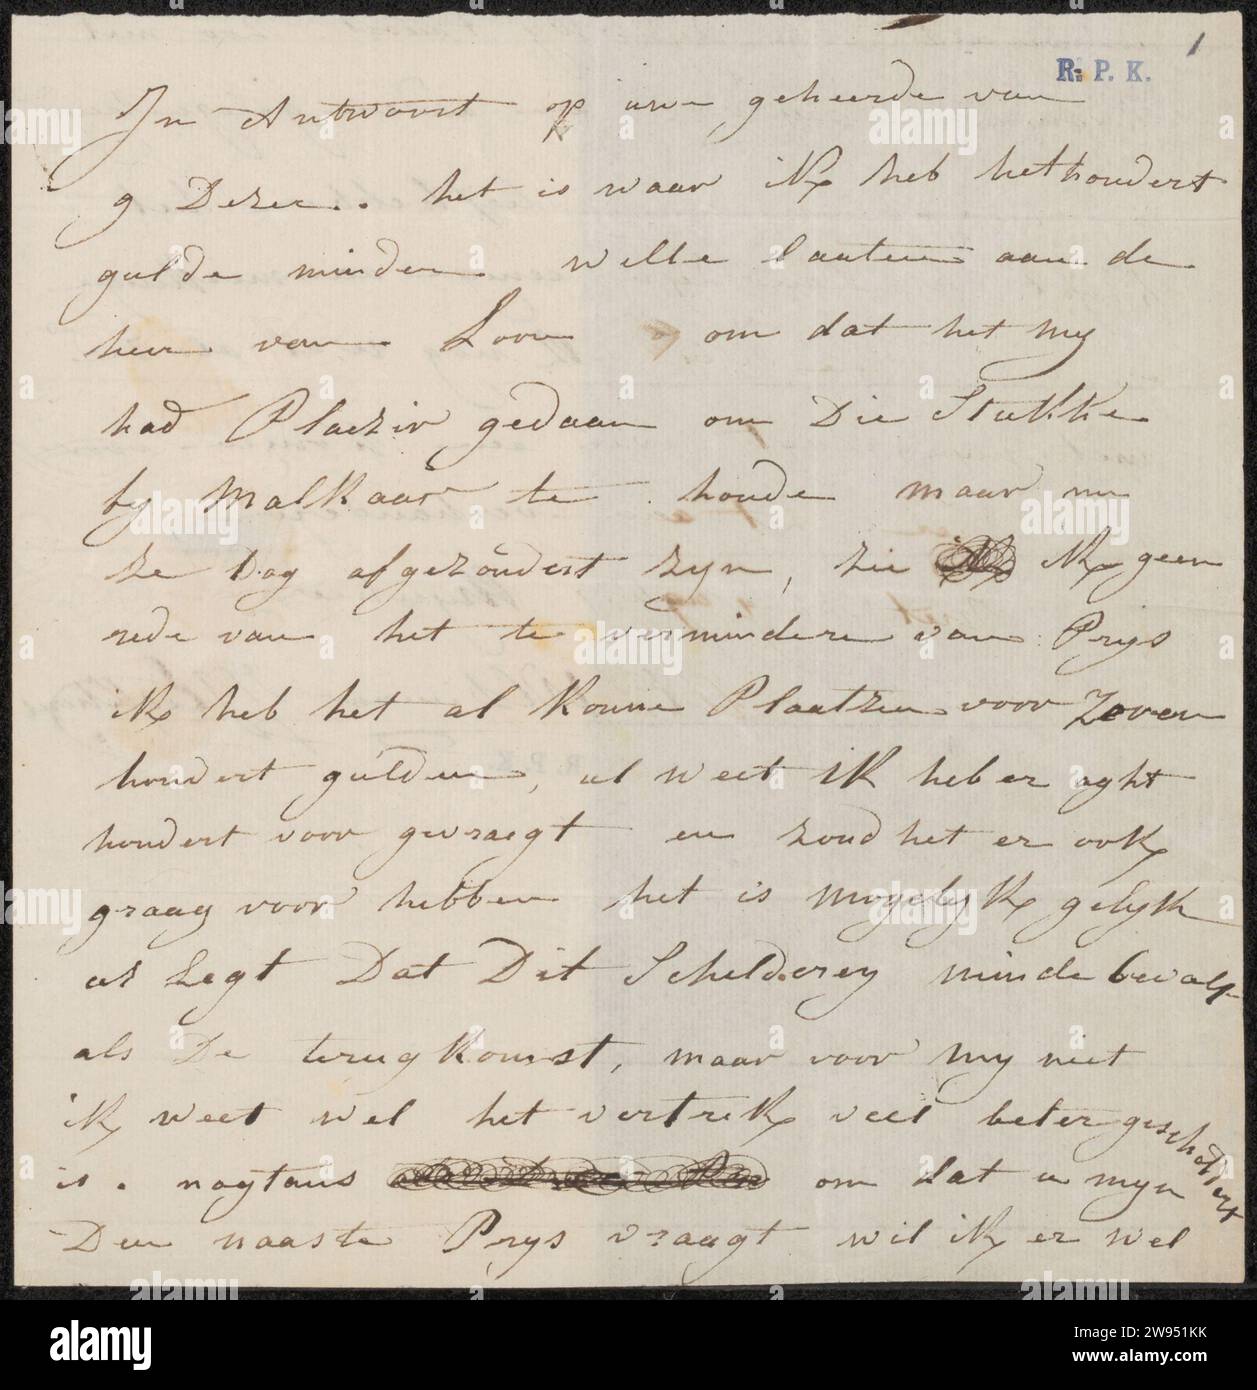 1
R. P. K.
In Antwoort op uwe geheerde van
9 Dezer.. het is waar ik heb het hondert
gulde minder welle laaten aan de
heer van Loon om dat het my
had Plaezir gedaan om Die Stukke
by Malkaar te houde maar nu
ze Dog afgezondert zyn, zie ik geen
rede van het te vermindere van Prys
ik heb het al konne Plaatzen voor Zeven
hondert gulden, al weet ik heb er aght
hondert voor gevraegt en zoud het er ook
graag voor hebben het is mogelyk gelyk
as Legt Dat Dit Schelderey minde bevalt
als De terugkomst, maar voor my niet
ik weet wel het vertrek veel beter geschildert
is. nogtans om dat u myn
Den naaste Prys vraagt wil ik er wel
alamy
alamy
Image ID: 2W951KK
www.alamy.com